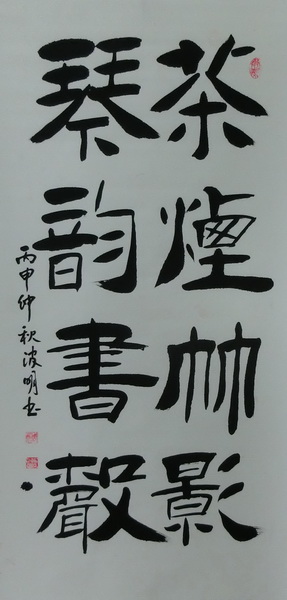 茶煙竹影
琴韵書聲
丙申仲秋波明书